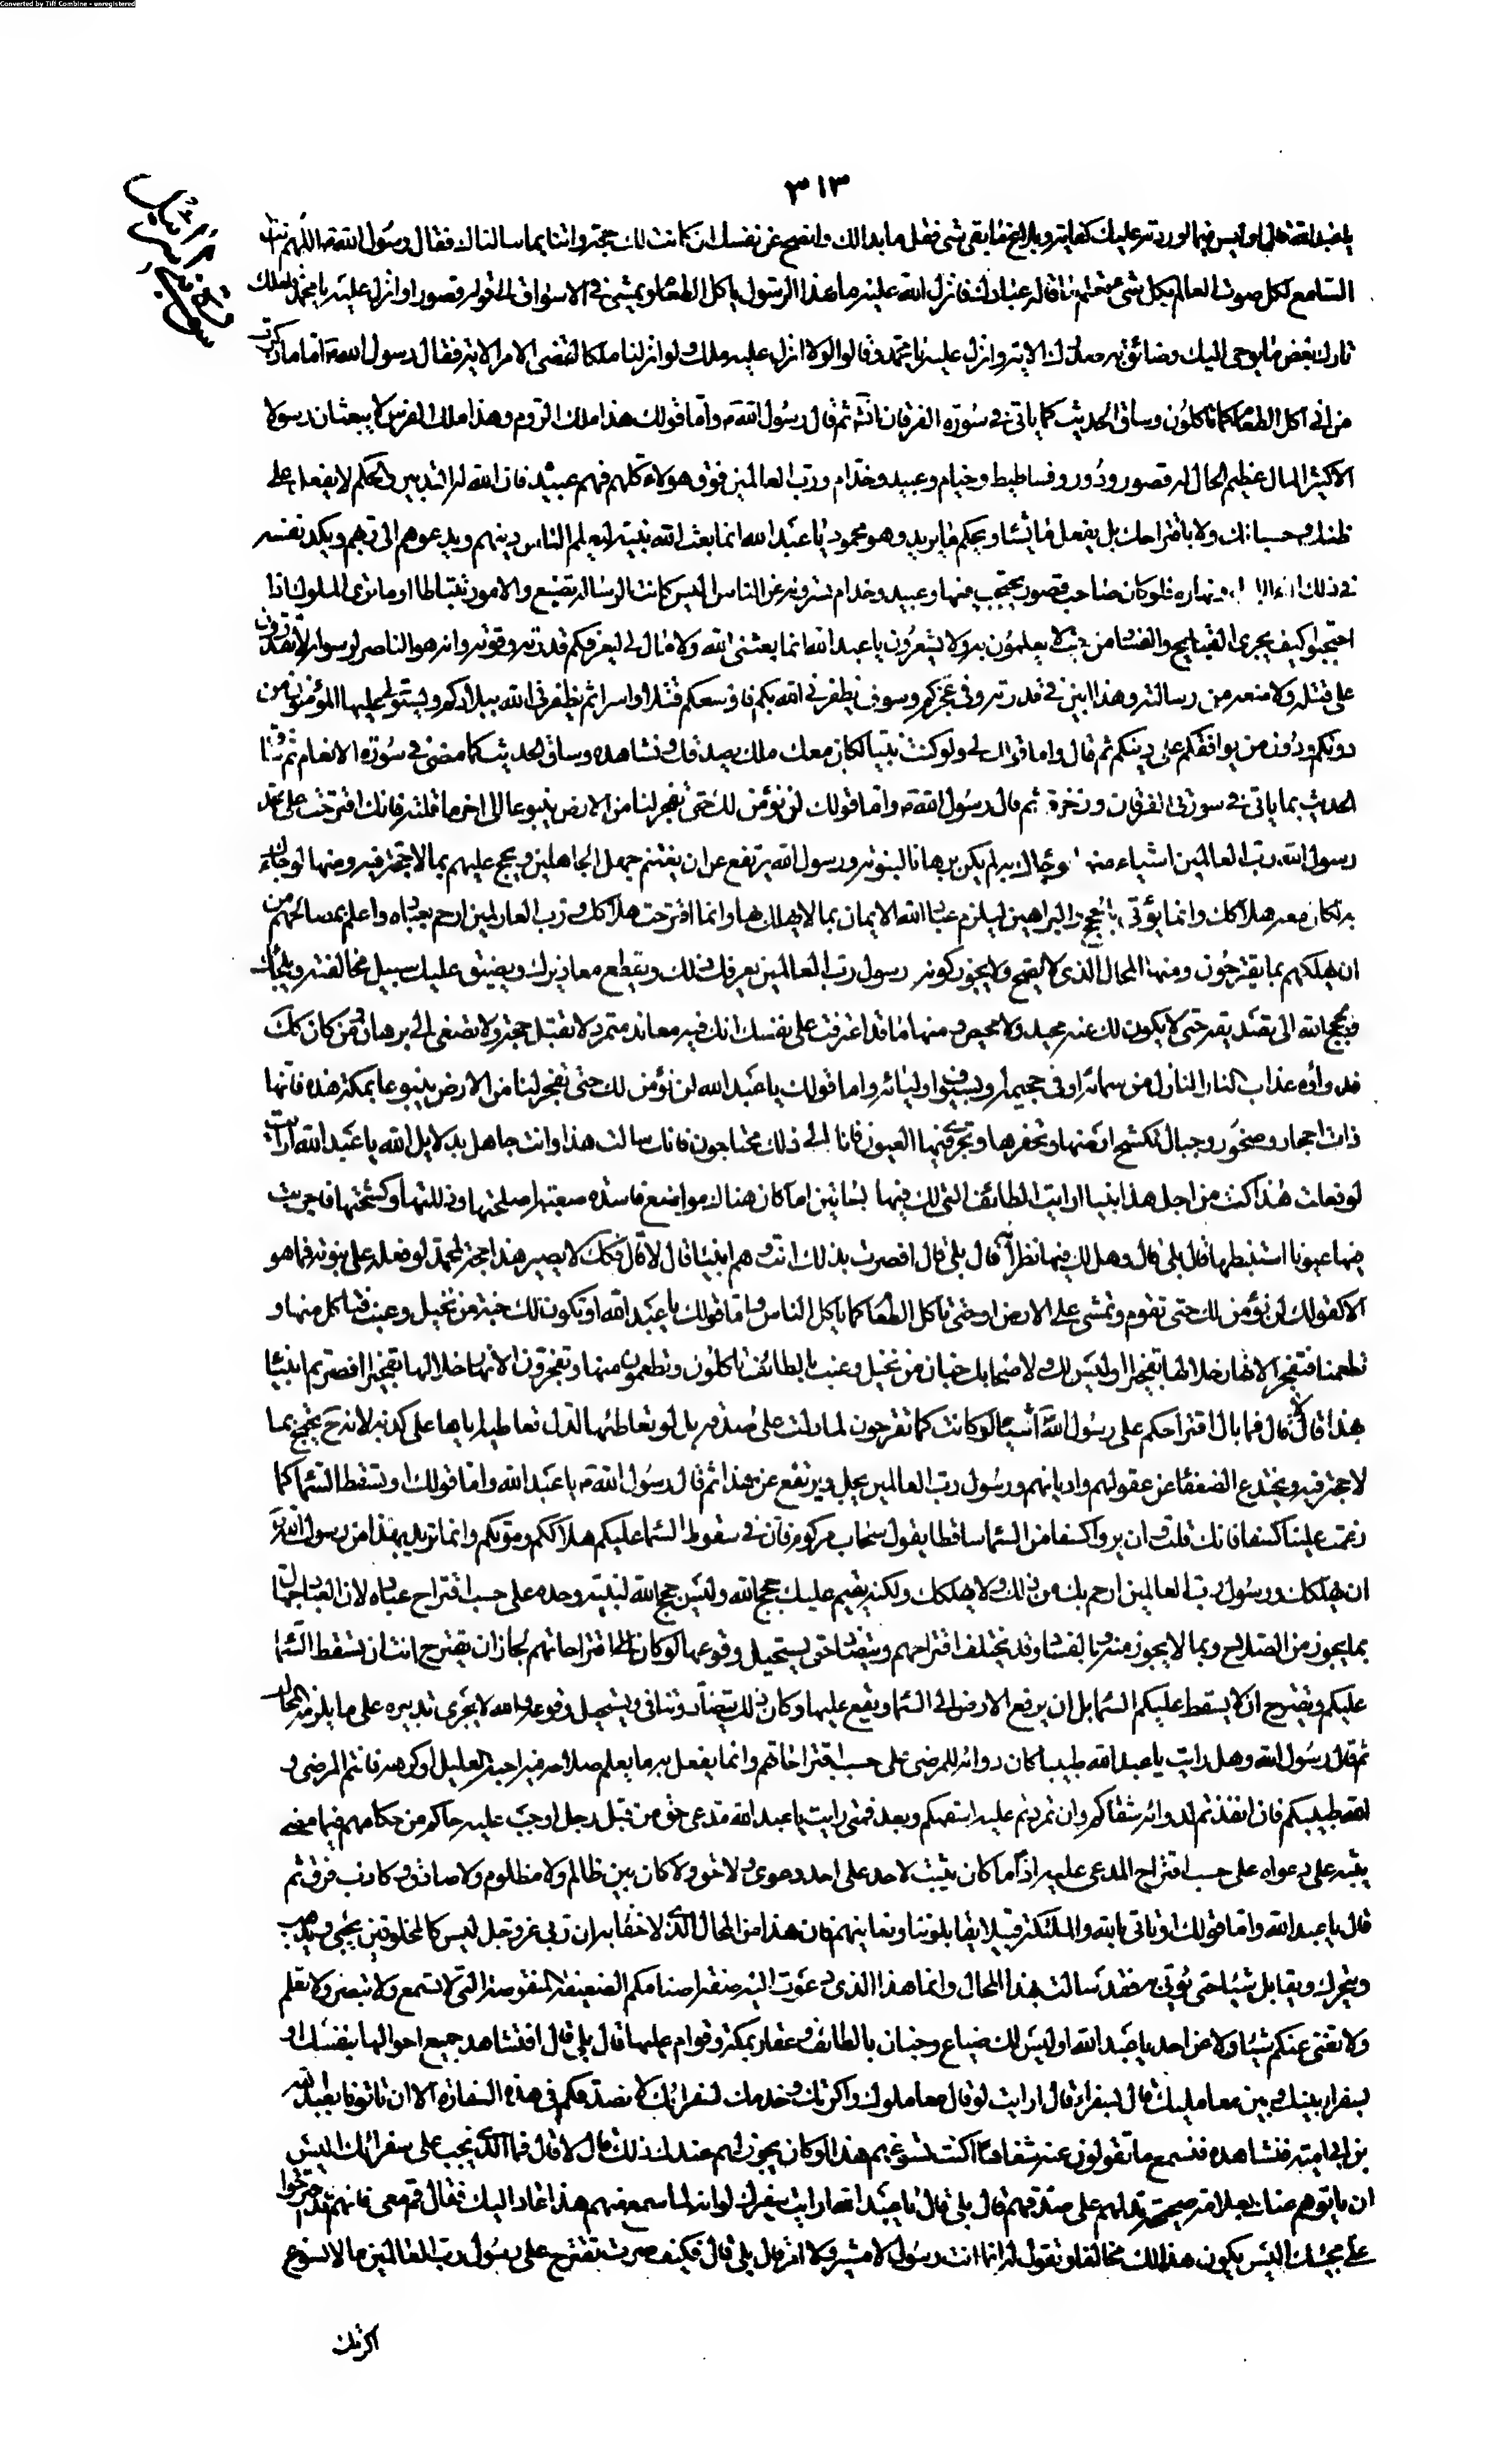 Converted by Tiff Combine - unregistered
٣١٣
يا عبد الله فقال اوليس فيما اوردته عليك كفاية وبلاغ فما بقي شئ فقل ما بدالك وافصح عن نفسك ان كانت لك حجة واتنا بما سالناك فقال رسول الله ص اللهم انت
السامع لكل صوت العالم بكل شئ تعلم ما قاله عبادك فانزل الله عليه ما هذا الرسول ياكل الطعام ويمشى في الاسواق الى قوله قصورا وانزل عليه يا محمد فلعلك
تارك بعض ما يوحى اليك وضائق به صدرك الاية وانزل عليه يا محمد وقالوا لولا انزل عليه ملك ولو انزلنا ملكا لقضى الامر الاية فقال رسول الله ص اما ما ذكرت
من اني اكل الطعام كما تاكلون وساق الحديث كما ياتي في سورة الفرقان ثم قال رسول الله ص واما قولك هذا ملك الروم وهذا ملك الفرس لا يبعثان رسولا
الا كثير المال عظيم الحال له قصور ودور وفساطيط وخيام وعبيد وخدام ورب العالمين فوق هولاء كلهم فهم عبيده فان الله له التدبير والحكم لا يفعل على
ظنك وحسبانك ولا باقتراحك بل يفعل ما يشاء ويحكم ما يريد وهو محمود يا عبد الله انما بعث الله نبيه ليعلم الناس دينهم ويدعوهم الى ربهم ويكد نفسه
في ذلك اناء الليل ونهاره فلو كان صاحب قصور يحتجب فيها وعبيد وخدام يسترونه عن الناس اليس كانت الرسالة تضيع والامور تتباطا اوما ترى الملوك اذا
احتجبوا كيف يجرى القبايح والفساد من حيث لا يعلمون به ولا يشعرون يا عبد الله انما بعثني الله ولا مال لي ليعرفكم قدرته وقوته وانه هو الناصر لرسوله لا تقدرون
على قتله ولا منعه من رسالته وهذا ابين في قدرته وفي عجزكم وسوف يظفرني الله بكم فاوسعكم قتلا واسرا ثم يظفرني الله ببلادكم ويستولى عليها المؤمنون من
دونكم ودون من يوافقكم على دينكم ثم قال واما قولك لي ولو كنت نبيا لكان معك ملك يصدقك ونشاهده وساق الحديث كما مضى في سورة الانعام ثم ساق
الحديث بما ياتي في سورتى الفرقان وزخرف ثم قال رسول الله ص واما قولك لن نؤمن لك حتى تفجر لنا من الارض ينبوعا الى اخر ما قلته فانك اقترحت على محمد
رسول الله رب العالمين اشياء منها لو جاءك به لم يكن برهانا لنبوته ورسول الله يرتفع عن ان يغتنم جهل الجاهلين ويحتج عليهم بما لا حجة فيه ومنها لو جاءك
به لكان معه هلاكك وانما يؤتى بالحجج والبراهين ليلزم عباد الله الايمان بما لا يهلك بها وانما اقترحت هلاكك ورب العالمين ارحم بعباده واعلم بمصالحهم من
ان يهلكهم بما يقترحون ومنها المحال الذي لا يصح ولا يجوز كونه رسول رب العالمين يعرفك ذلك ويقطع معاذيرك ويضيق عليك سبيل مخالفته ويلجأك
بحجج الله الى تصديقه حتى لا يكون لك عنه محيد ولا محيص ومنها ما قد اعترفت على نفسك انك فيه معاند متمرد لا تقبل حجة ولا تصغى الى برهان ومن كان كك
فدواؤه عذاب النار النازل من سمائه او في جحيمه او بسيوف اوليائه واما قولك يا عبد الله لن نؤمن لك حتى تفجر لنا من الارض ينبوعا بمكة هذه فانها
ذات احجار وصخور وجبال تكسح ارضها وتحفرها وتجرى فيها العيون فاننا الى ذلك محتاجون فانك سالت هذا وانت جاهل بدلايل الله يا عبد الله ارايت
لو فعلت هذا كنت من اجل هذا نبيا ارايت الطائف التي لك فيها بساتين اما كان هناك مواضع فاسدة صعبة اصلحتها وذللتها وكسحتها فاجريت
فيها عيونا استنبطتها قال بلى قال وهل لك فيها نظراء قال بلى قال افصرت بذلك انت وهم انبياء قال لا قال فكك لا يصير هذا حجة لمحمد لو فعله على نبوته فما هو
الا كقولك لن نؤمن لك حتى تقوم وتمشى على الارض او حتى تاكل الطعام كما ياكل الناس واما قولك يا عبد الله او تكون لك جنة من نخيل وعنب فتاكل منها و
تطعمنا فتفجر الانهار خلالها تفجيرا اوليس لك ولاصحابك جنان من نخيل وعنب بالطائف تاكلون وتطعمون منها وتفجرون الانهار خلالها تفجيرا افصرتم انبياء
بهذا قال لا قال فما بال اقتراحكم على رسول الله اشياء لو كانت كما تقترحون لما دلت على صدقه بل لو تعاطاها لدل تعاطيه اياها على كذبه لانه ح يحتج بما
لا حجة فيه ويختدع الضعفاء عن عقولهم واديانهم ورسول رب العالمين يجل ويرتفع عن هذا ثم قال رسول الله ص يا عبد الله واما قولك او تسقط السماء كما
زعمت علينا كسفا فانك قلت وان يروا كسفا من السماء ساقطا يقولوا سحاب مركوم فان في سقوط السماء عليكم هلاككم وموتكم وانما تريد بهذا من رسول الله
ان يهلكك ورسول رب العالمين ارحم بك من ذلك ولا يهلكك ولكنه يقيم عليك حجج الله وليس حجج الله لنبيه وحده على حسب اقتراح عباده لان العباد جهال
بما يجوز من الصلاح وبما لا يجوز منه بالفساد وقد يختلف اقتراحهم ويتضاد حتى يستحيل وقوعها لو كان الى اقتراحاتهم لجاز ان يقترح انت ان تسقط السماء
عليكم ويقترح ان لا يسقط عليكم السماء بل ان يرفع الارض الى السماء ويقع عليها وكان ذلك يتضاد وتنافى ويستحيل وقوعه والله لا يجرى تدبيره على ما يلزمه المحال
ثم قال رسول الله وهل رايت يا عبد الله طبيبا كان دوائه للمرضى على حسب اقتراحاتهم وانما يفعل به ما يعلم صلاحه فيه احبه العليل او كرهه فانتم المرضى و
الله طبيبكم فان انفذتم لدوائه شفاكم وان تمردتم عليه اسقمكم وبعد فمتى رايت يا عبد الله مدعى حق من قبل رجل اوجب عليه حاكم من حكامهم فيما مضى
بينة على دعواه على حسب اقتراح المدعى عليه اذاً ما كان يثبت لاحد على احد دعوى ولا حق ولا كان بين ظالم ولا مظلوم ولا صادق وكاذب فرق ثم
قال يا عبد الله واما قولك او تاتي بالله والملئكة قبيلا يقابلوننا ونعاينهم فان هذا من المحال الذي لا خفاء به ان ربي عز وجل ليس كالمخلوقين يجيئ ويذهب
ويتحرك ويقابل شيئا حتى يؤتى به فقد سالت بهذا المحال وانما هذا الذي دعوت اليه صفة اصنامكم الضعيفة المنقوصة التي لا تسمع ولا تبصر ولا تعلم
ولا تغنى عنكم شيئا ولا عن احد يا عبد الله اوليس لك ضياع وجنان بالطائف وعقار بمكة وقوام عليها قال بلى قال افتشاهد جميع احوالها بنفسك او
بسفراء بينك وبين معامليك قال بسفراء قال ارايت لو قال معاملوك واكرتك وخدمك لسفرائك لا نصدقكم في هذه السفارة الا ان تاتونا بعبد الله
بن ابي امية فنشاهده فنسمع ما تقولون عنه شفاها اكنت تسوغهم هذا او كان يجوز لهم عندك ذلك قال لا قال فما الذي يجب على سفرائك اليس
ان ياتوهم عنك بعلامة صحيحة تدلهم على صدقهم قال بلى قال يا عبد الله ارايت سفيرك لو انه لما سمع منهم هذا عاد اليك فقال قم معى فانهم قد اقترحوا
على مجيئك اليس يكون هذا لك مخالفا وتقول له انما انت رسول لا مشير ولا امر قال بلى قال فكيف صرت تقترح على رسول رب العالمين ما لا تسوغ
اكرتك